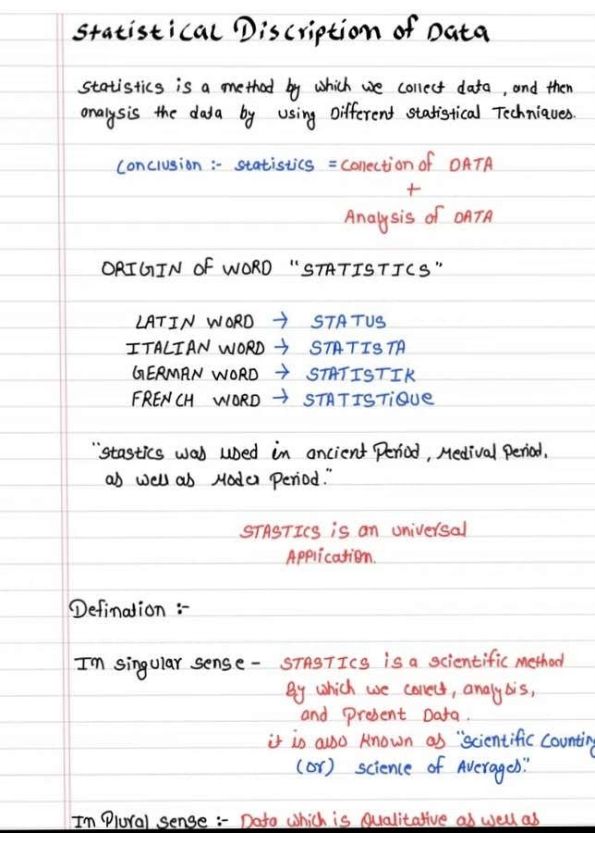 Statistical Discription of Data
Statistics is a method by which we collect data, and then
analysis the data by using Different statistical Techniques.
Conclusion :- statistics = Collection of DATA
+
Analysis of DATA
ORIGIN OF WORD "STATISTICS"
LATIN WORD → STATUS
ITALIAN WORD → STATISTA
GERMAN WORD → STATISTIK
FRENCH WORD → STATISTIQUE
"Stastics was used in ancient Period, Medival Period,
as well as Moder Period."
STASTICS is an universal
APPlication.
Defination :-
Im singular sense - STASTICS is a scientific Method
By which we collect, analysis,
and Present Data.
it is also known as "scientific Counting
(or) science of Averages."
Im Plural sense :- Data which is Qualitative as well as